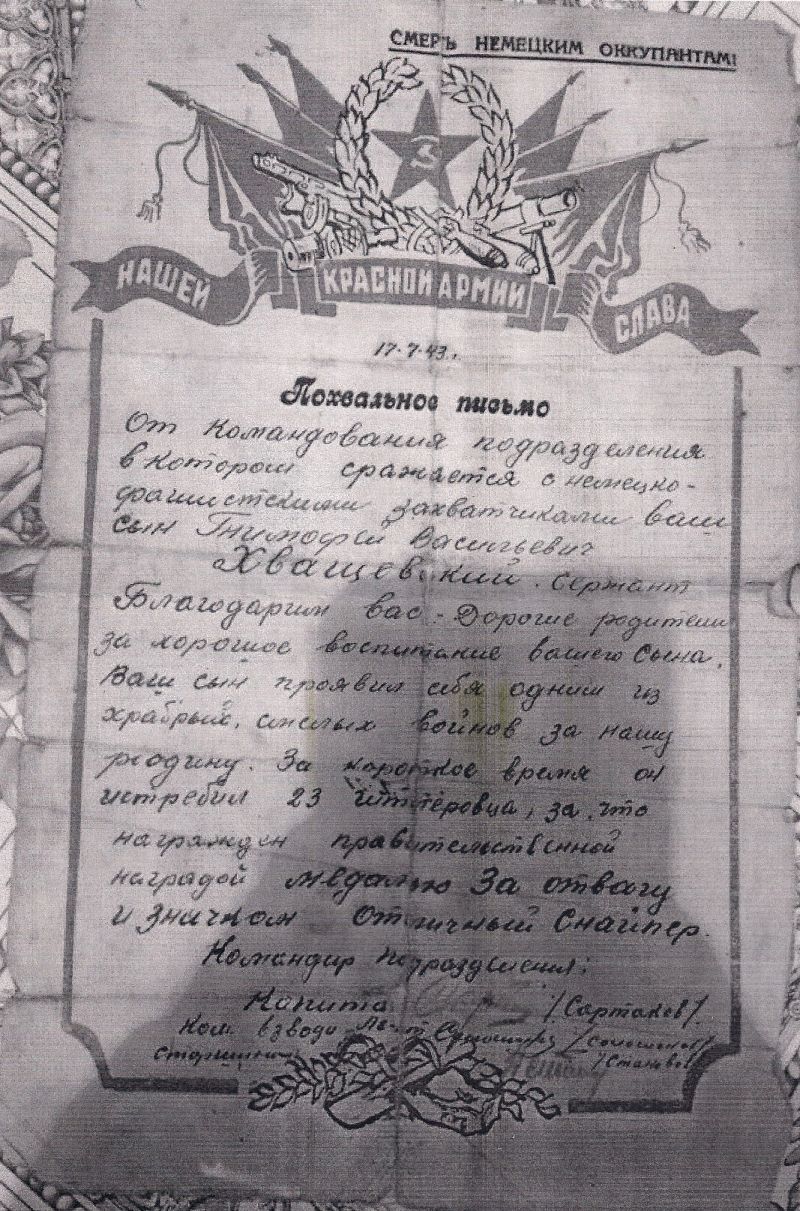 СМЕРТЬ НЕМЕЦКИМ ОККУПАНТАМ!
НАШЕЙ КРАСНОЙ АРМИИ СЛАВА
17.7.43 г.
Похвальное письмо
От командования подразделения
в котором сражается с немецко-
фашистскими захватчиками ваш
сын Тимофей Васильевич
Хващевский. Сержант
Благодарим вас. Дорогие родители
за хорошое воспитание вашего сына.
Ваш сын проявил себя одним из
храбрых, смелых войнов за нашу
родину. За короткое время он
истребил 23 гитлеровца, за что
награжден правительственной
наградой медалью За отвагу
и значком Отличный Снайпер.
Командир подразделения:
Капитан /Сартаков/.
Ком. взвода